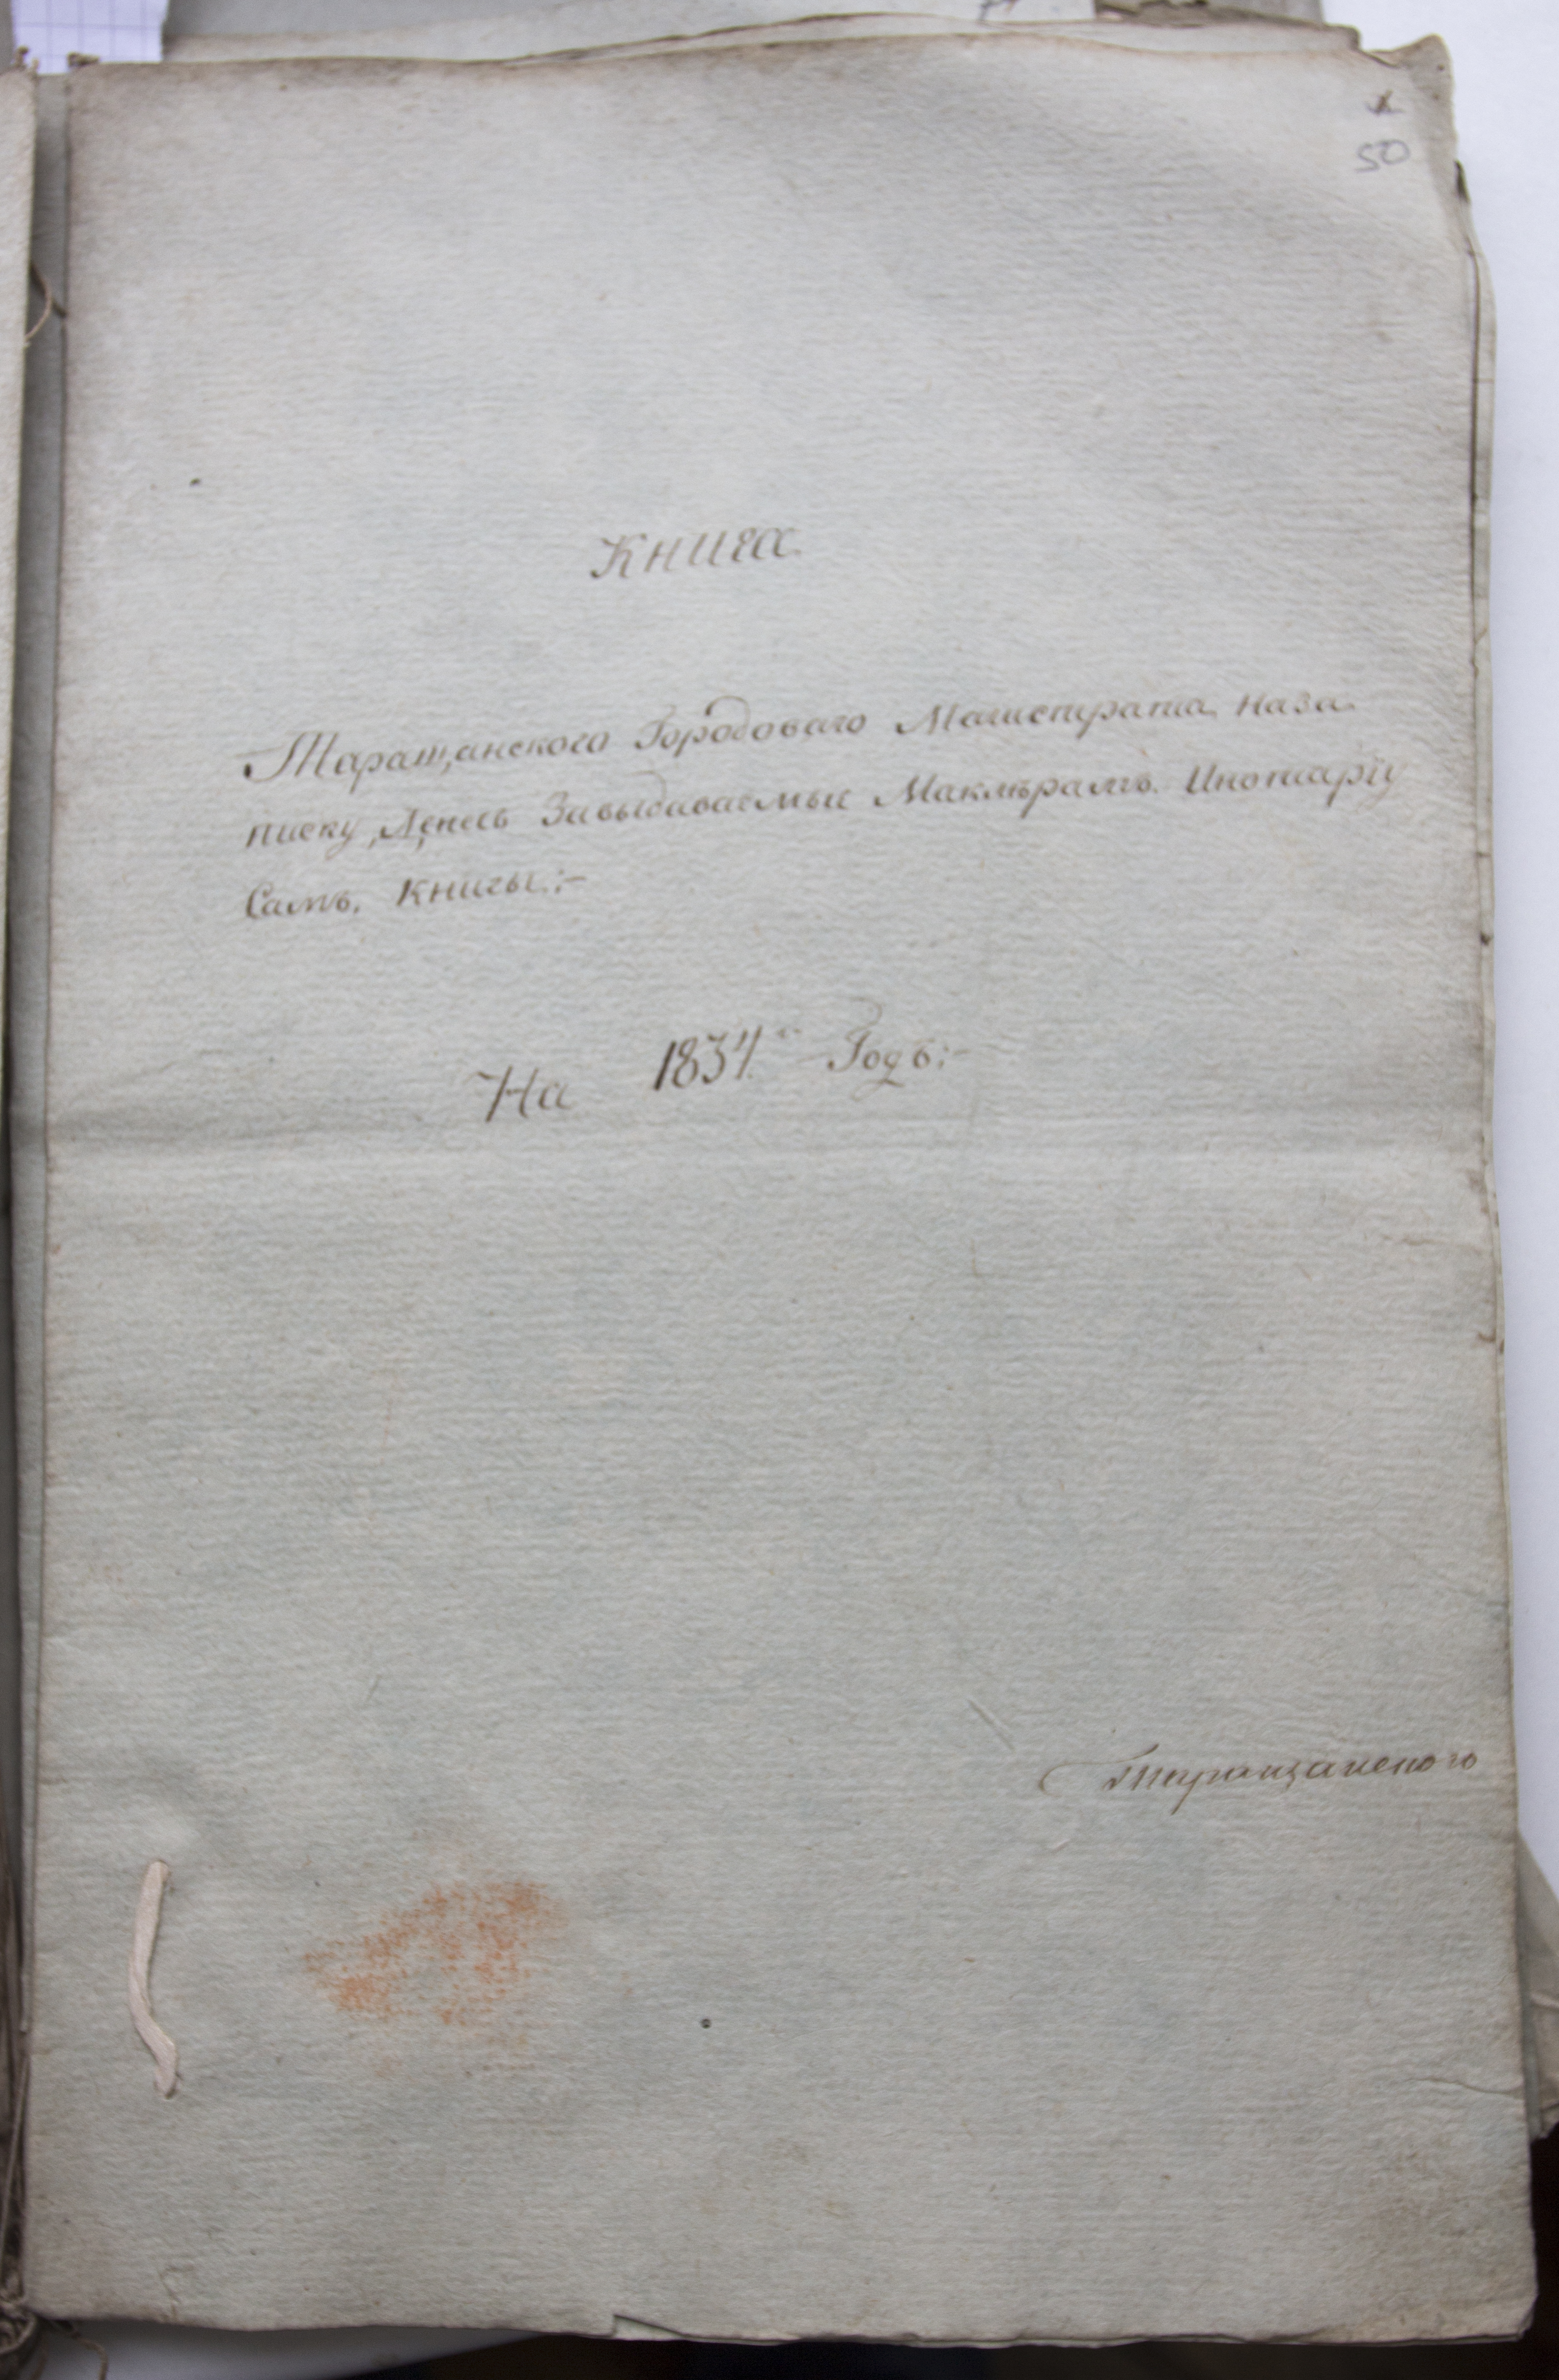 50
Книга
Таращанского Городоваго Магистрата наза
писку, Денегъ Завыдаваемые Маклѣрамъ. Инотаріу
Самъ. Книгы:-
На 1834й Годъ:-
Таращанского